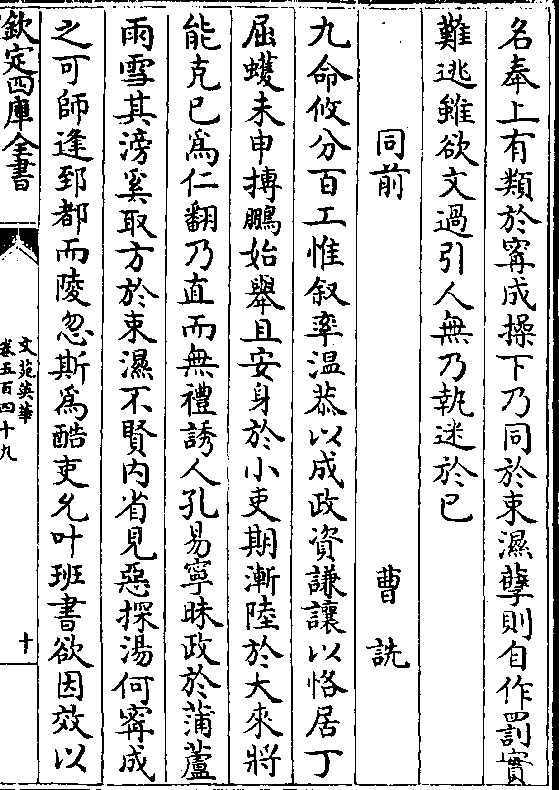 名奉上有類於寗成操下乃同於束濕孽則自作罰實
難逃雖欲文過引人無乃執迷於已
同前　曹詵
九命攸分百工惟叙率温恭以成政資謙讓以恪居丁
屈蠖未申摶鵬始舉且安身於小吏期漸陸於大來將
能克已為仁翻乃直而無禮誘人孔易寧昧政於蒲蘆
雨雪其滂奚取方於束濕不賢内省見惡探湯何寗成
之可師逢郅都而陵忽斯為酷吏允叶班書欲因效以
欽定四庫全書
文苑英華
卷五百四十九
十